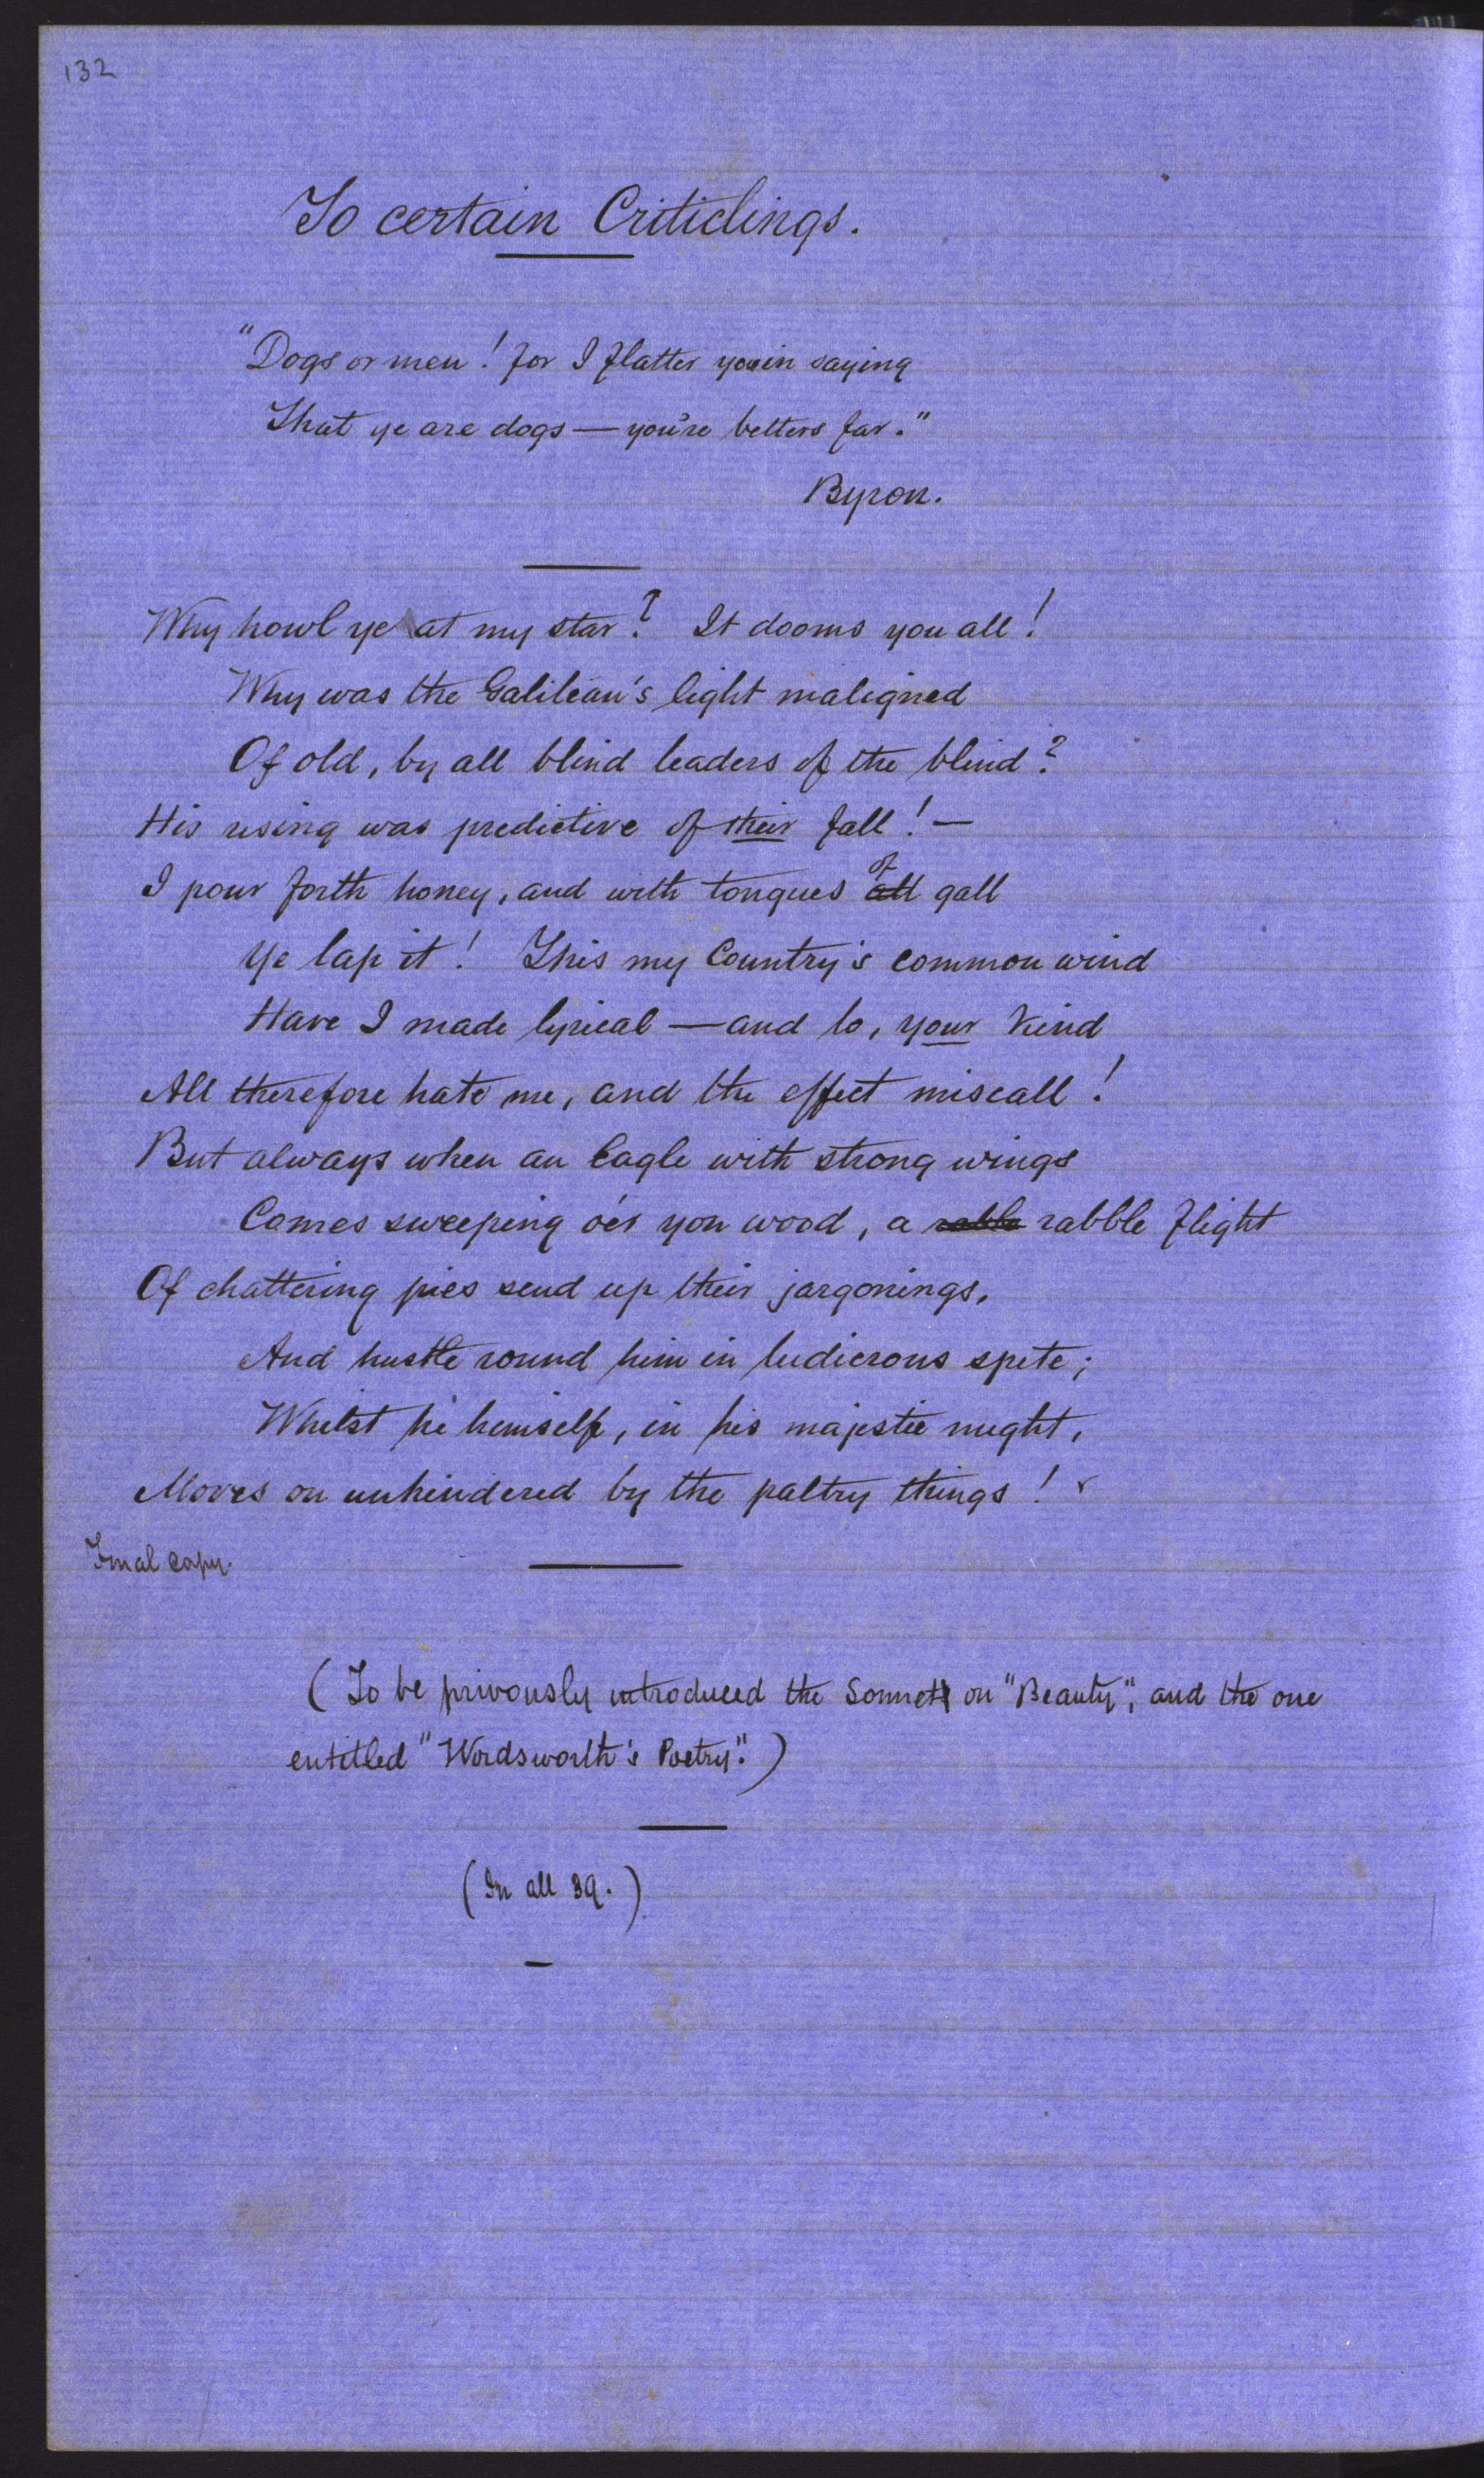 132
To certain Criticlings.
"Dogs or men! for I flatter you in saying
That ye are dogs — you're betters far."
Byron.
Why howl ye at my star? It dooms you all!
Why was the Galilean's light maligned
Of old, by all blind leaders of the blind?
His rising was predictive of their fall! —
I pour forth honey, and with tongues all of gall
Ye lap it! This my Country's common wind
Have I made lyrical — and lo, your kind
All therefore hate me, and the effect miscall!
But always when an Eagle with strong wings
Comes sweeping o'er yon wood, a rabble flight
Of chattering pies send up their jargonings,
And hustle round him in ludicrous spite;
Whilst he himself, in his majestic might,
Moves on unhindered by the paltry things!
Final copy.
(To be privously introduced the Sonnet on "Beauty", and the one
entitled "Wordsworth's Poetry".)
(In all 39.)